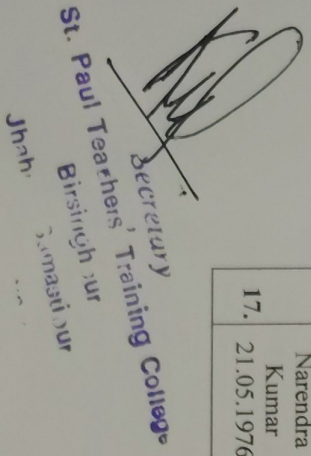 Secretary
St. Paul Teachers' Training College
Birsingh ur
Jhah
Samasti ur
Narendra
Kumar
17. 21.05.1976